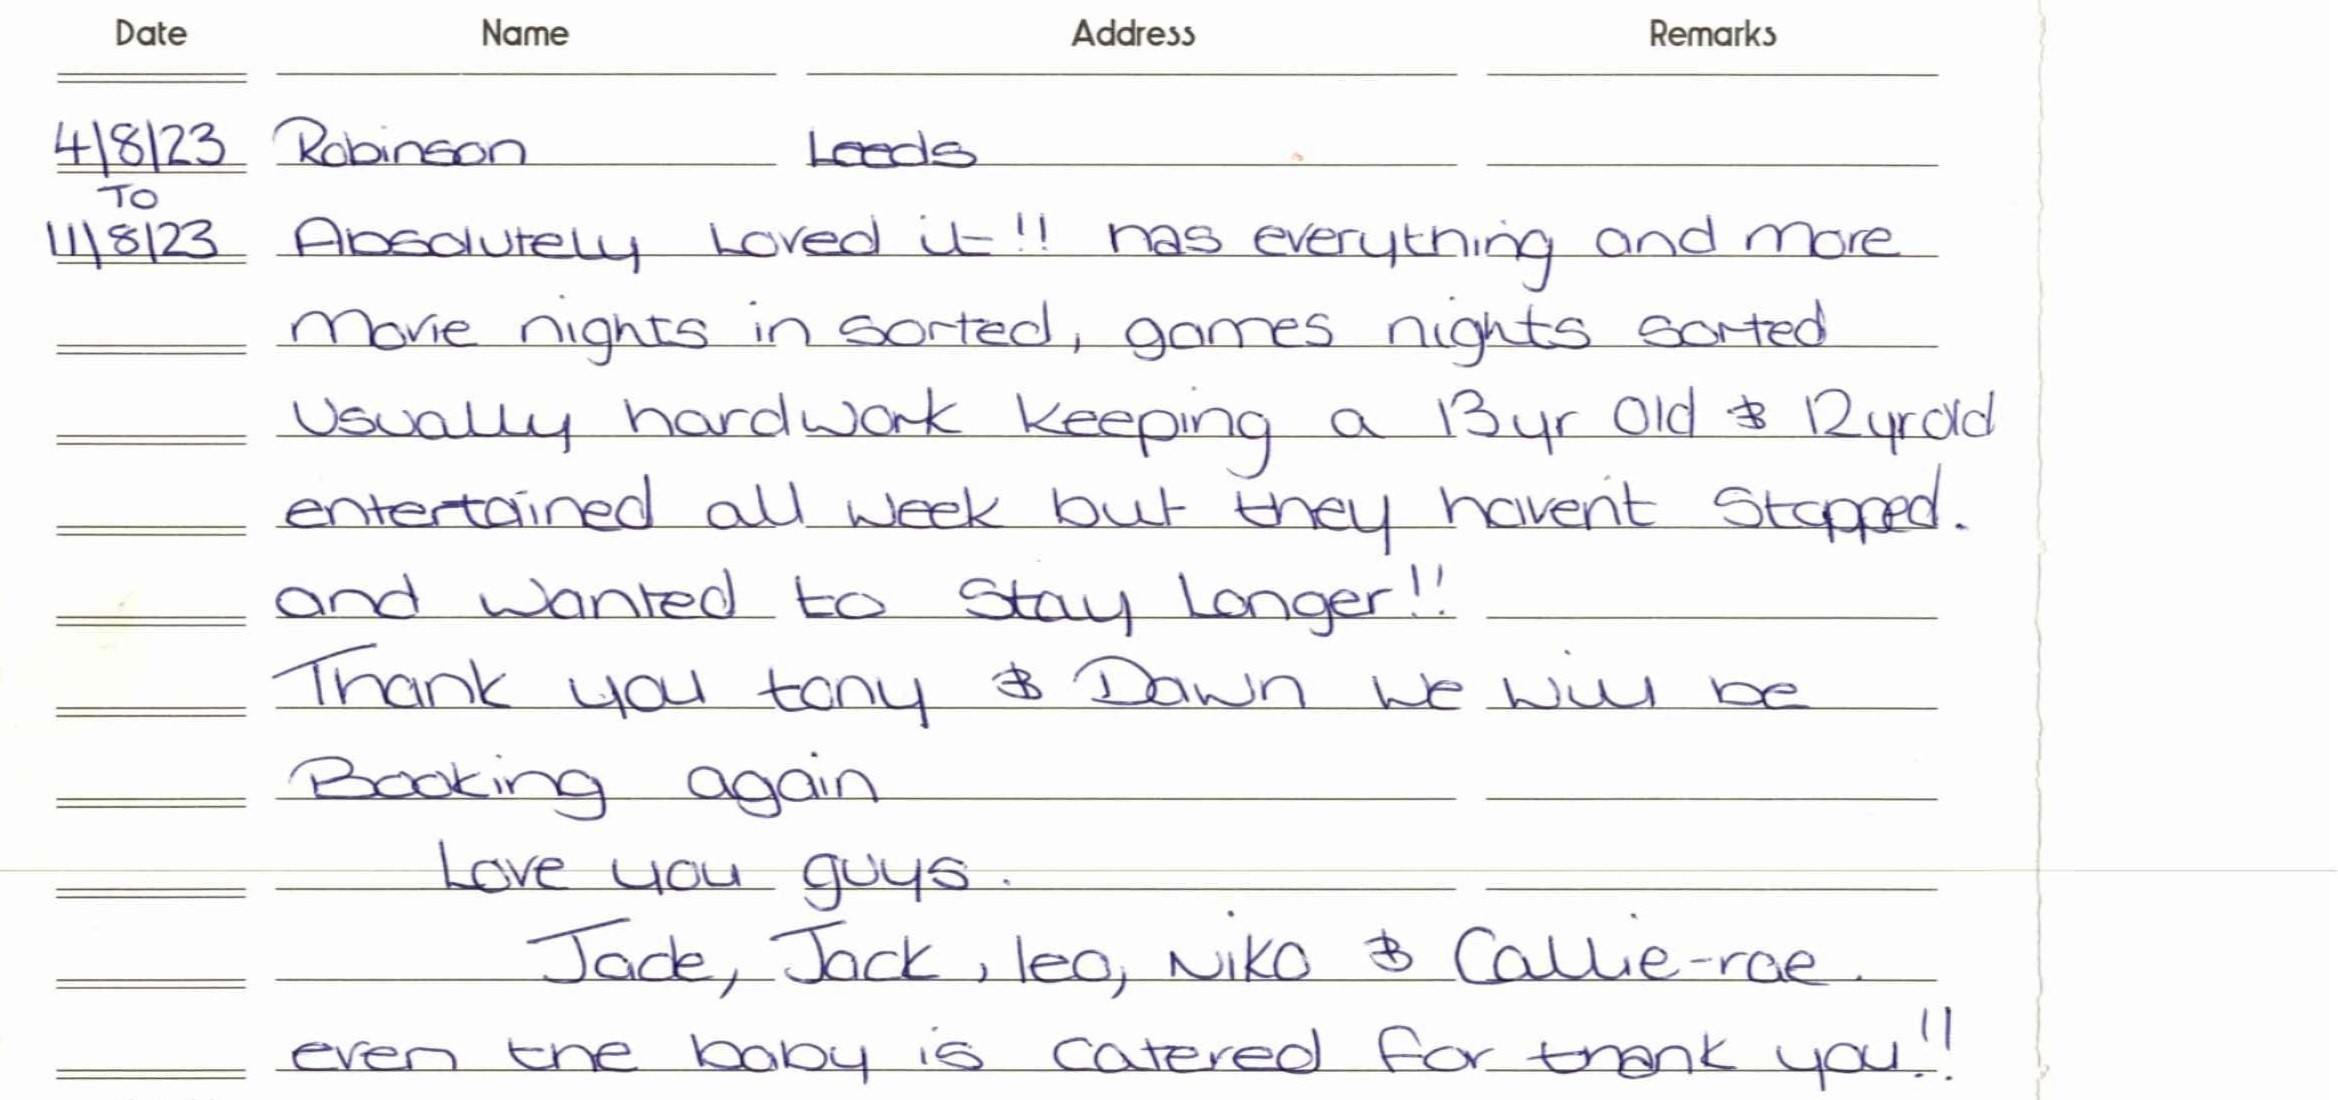 Date Name Address Remarks
4/8/23 Robinson Leeds
TO
11/8/23 Absolutely Loved it!! has everything and more
Movie nights in sorted, games nights sorted
Usually hardwork keeping a 13yr Old & 12yrold
entertained all week but they havent Stopped.
and wanted to Stay Longer!!
Thank you tony & Dawn we will be
Booking again
Love you guys.
Jade, Jack, leo, Niko & Callie-rae.
even the baby is catered for thank you!!